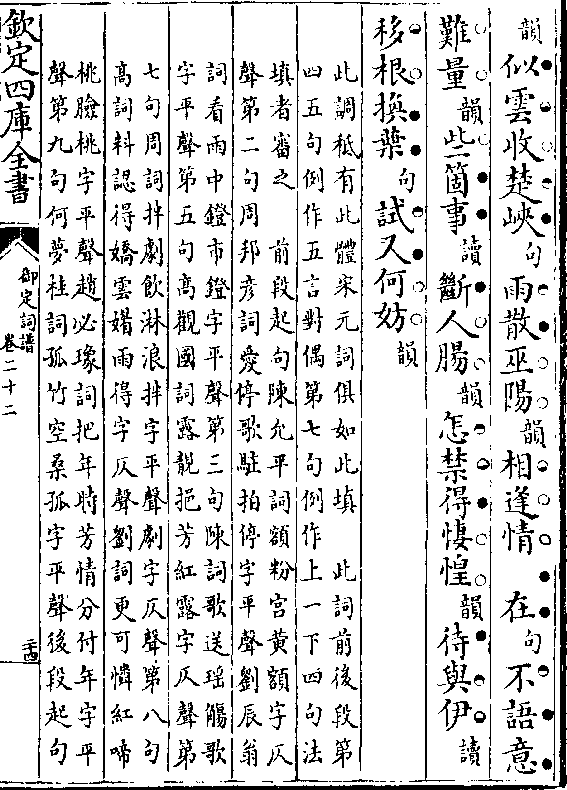 韻似雲收楚峽句雨散巫陽韻相逢情 在句不語意
難量韻些箇事讀斷人腸韻怎禁得悽惶韻待與伊讀
移根換葉句試又何妨韻
此調秪有此體宋元詞俱如此填 此詞前後段第
四五句例作五言對偶第七句例作上一下四句法
填者審之 前段起句陳允平詞額粉宮黃額字仄
聲第二句周邦彦詞愛停歌駐拍停字平聲劉辰翁
詞看雨中鐙市鐙字平聲第三句陳詞歌送瑶觴歌
字平聲第五句高觀國詞露靚挹芳紅露字仄聲第
七句周詞拌劇飲淋浪拌字平聲劇字仄聲第八句
高詞料認得嬌雲媚雨得字仄聲劉詞更可憐紅啼
桃臉桃字平聲趙必𤩪詞把年時芳情分付年字平
聲第九句何夢桂詞孤竹空桑孤字平聲後段起句
欽定四庫全書
御定詞譜
卷二十二
二十四